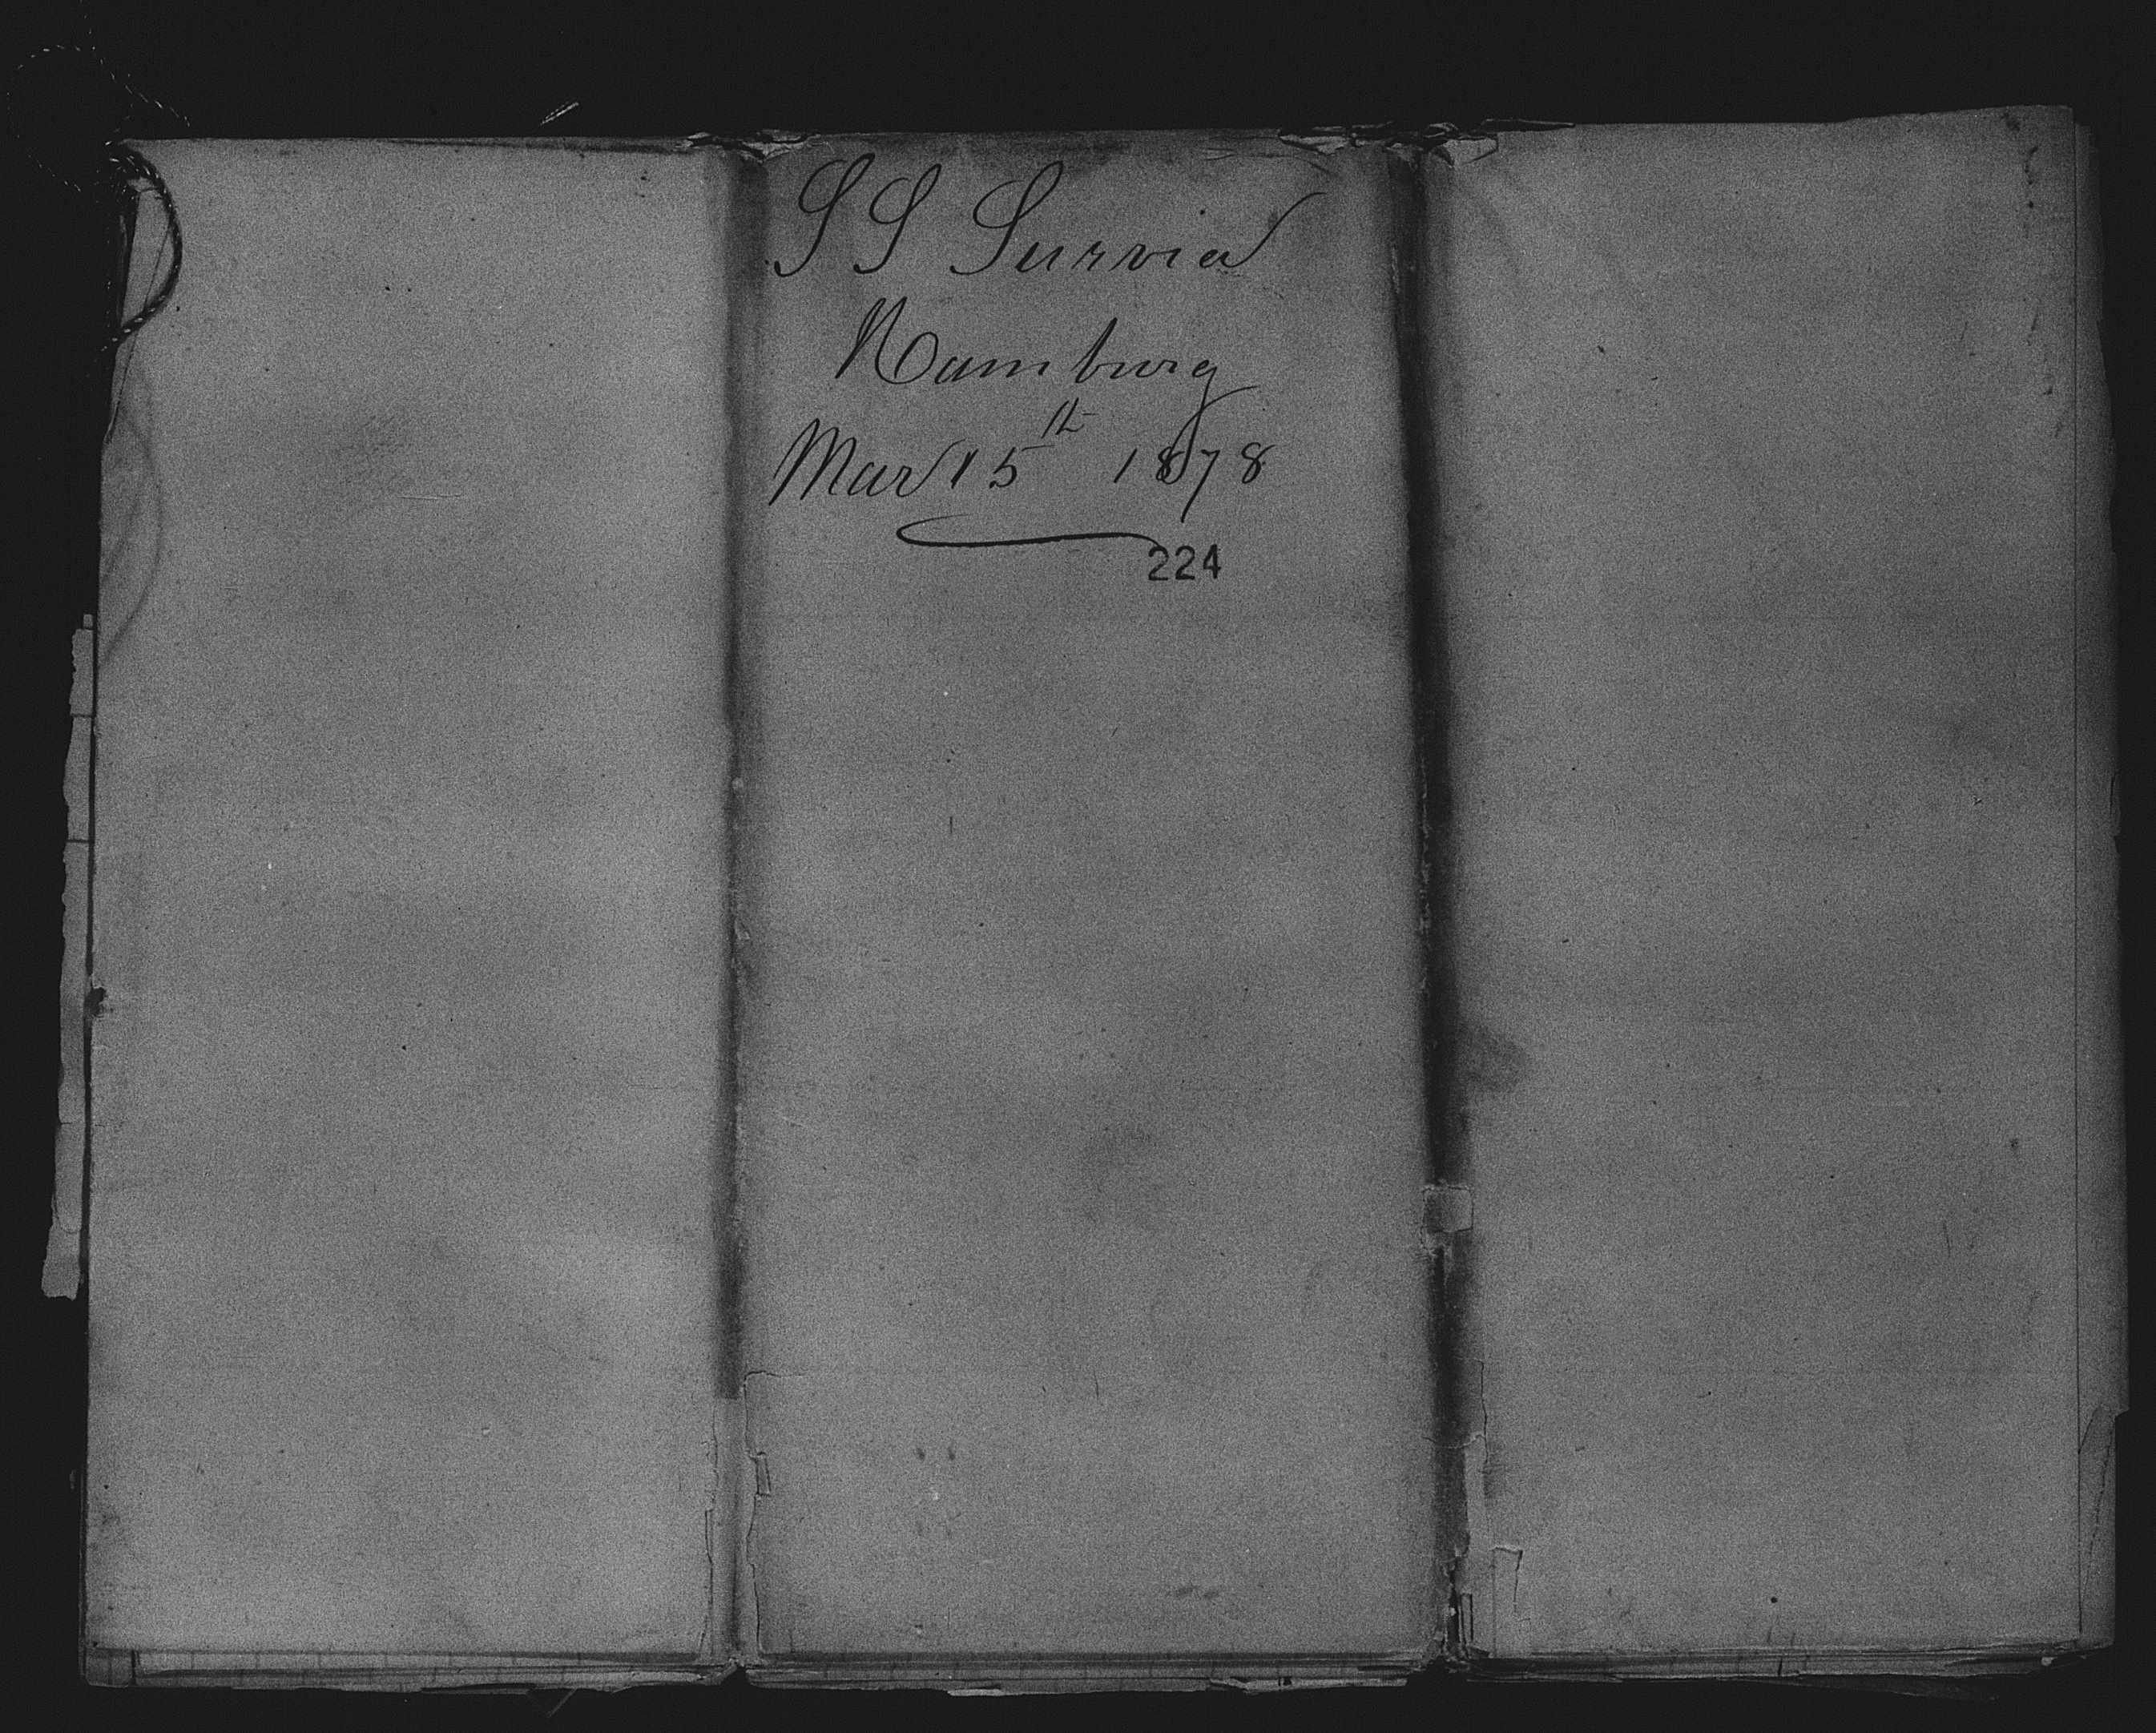 SS Survia
Hamburg
Mar 15th 1878
224